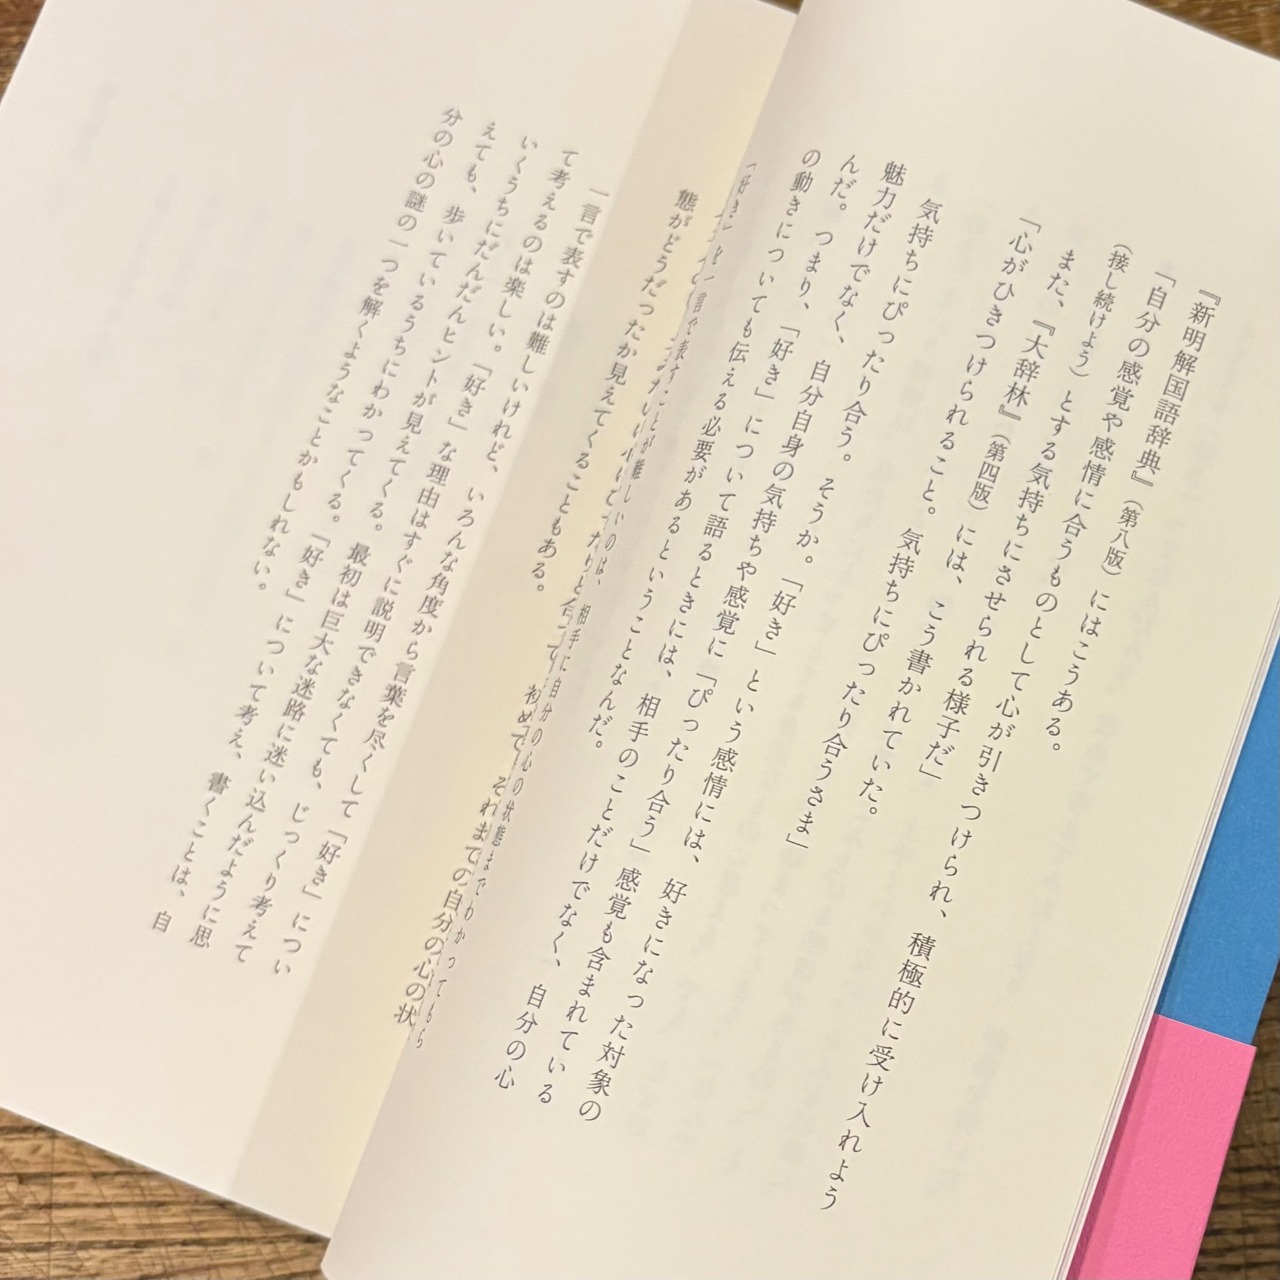 『新明解国語辞典』（第八版）にはこうある。
「自分の感覚や感情に合うものとして心が引きつけられ、積極的に受け入れよう
（接し続けよう）とする気持ちにさせられる様子だ」
また、『大辞林』（第四版）には、こう書かれていた。
「心がひきつけられること。気持ちにぴったり合うさま」
気持ちにぴったり合う。そうか。「好き」という感情には、好きになった対象の
魅力だけでなく、自分自身の気持ちや感覚に「ぴったり合う」感覚も含まれている
んだ。つまり、「好き」について語るときには、相手のことだけでなく、自分の心
の動きについても伝える必要があるということなんだ。
「好き」を一言で表すことが難しいのは、相手に自分の心の状態までわかってもら
初めて、それまでの自分の心の状
態がどうだったか見えてくることもある。
一言で表すのは難しいけれど、いろんな角度から言葉を尽くして「好き」につい
て考えるのは楽しい。「好き」な理由はすぐに説明できなくても、じっくり考えて
いくうちにだんだんヒントが見えてくる。最初は巨大な迷路に迷い込んだように思
えても、歩いているうちにわかってくる。「好き」について考え、書くことは、自
分の心の謎の一つを解くようなことかもしれない。